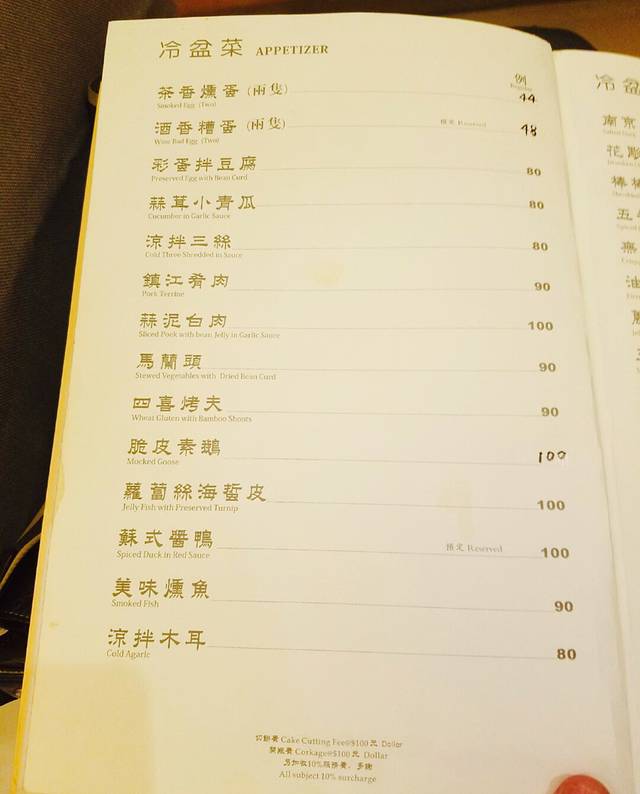 冷盆菜 APPETIZER
例
Regular
茶香燻蛋 (兩隻) 44
Smoked Egg (Two)
酒香糟蛋 (兩隻) 預定 Reserved 48
Wine Bad Egg (Two)
彩蛋拌豆腐 80
Preserved Egg with Bean Curd
蒜茸小青瓜 80
Cucumber in Garlic Sauce
涼拌三絲 80
Cold Three Shredded in Sauce
鎮江肴肉 90
Pork Terrine
蒜泥白肉 100
Sliced Pook with bean Jelly in Garlic Sauce
馬蘭頭 90
Stewed Vegetables with Dried Bean Curd
四喜烤夫 90
Wheat Gluten with Bamboo Shoots
脆皮素鵝 100
Mocked Goose
蘿蔔絲海蜇皮 100
Jelly Fish with Preserved Turnip
蘇式醬鴨 預定 Reserved 100
Spiced Duck in Red Sauce
美味燻魚 90
Smoked Fish
涼拌木耳 80
Cold Agaric
切餅費 Cake Cutting Fee@$100 元 Dollar
開瓶費 Corkage@$100 元 Dollar
另加收10%服務費，多謝
All subject 10% surcharge
冷盆
南京
花彫
棒棒
油